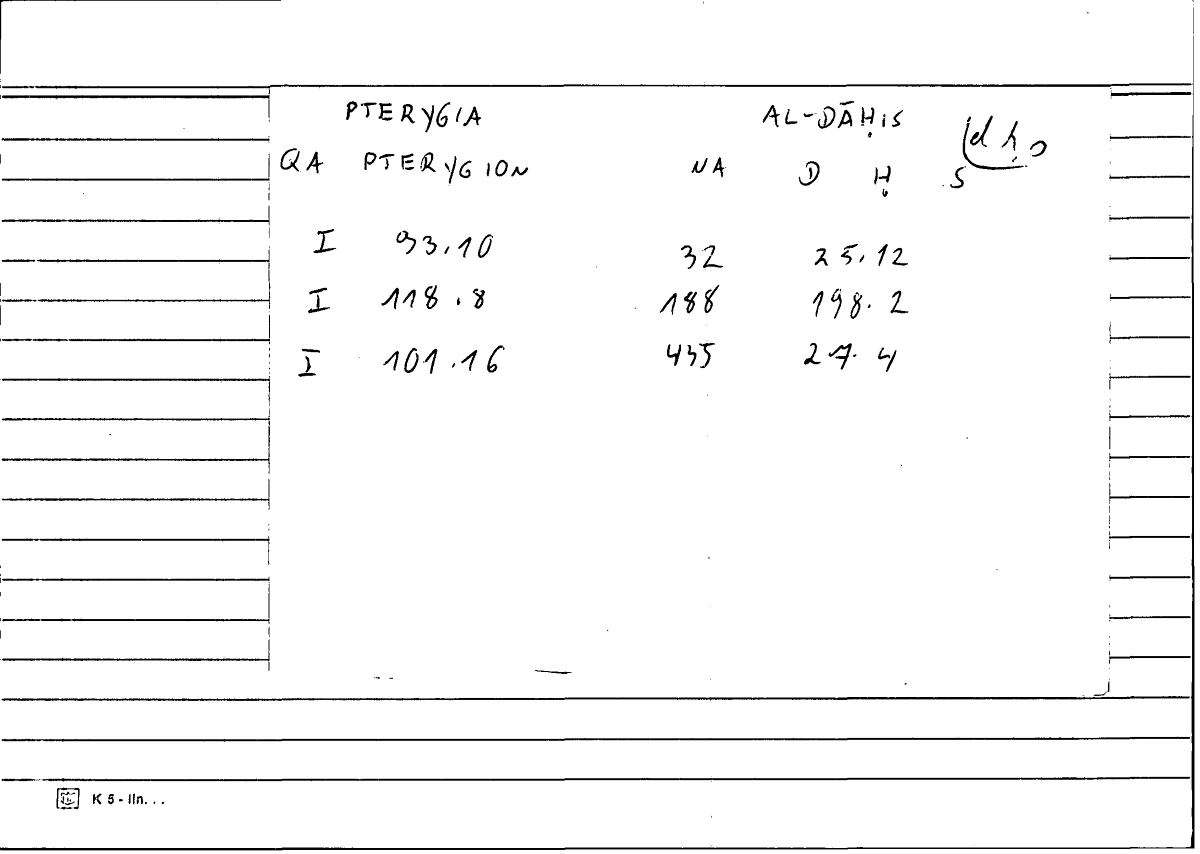 PTERYGIA AL-DĀḤIS
QA PTERYGION NA D Ḥ S
I 93.10 32 25.12
I 118.8 188 198.2
I 101.16 435 27.4
K 5 - lln. . .